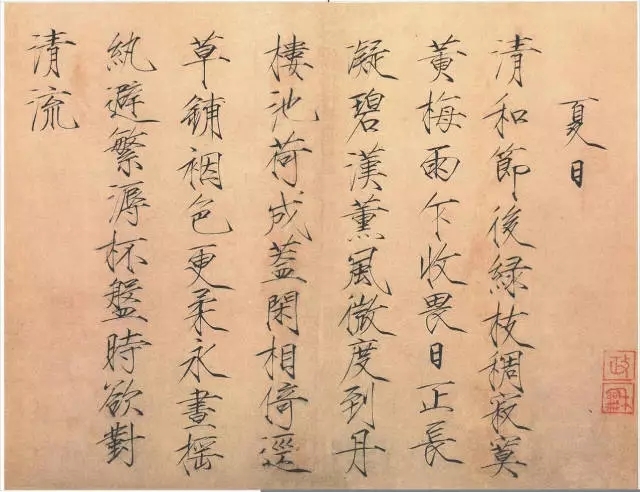 夏日
清和節後綠枝稠寂寞
黃梅雨乍收畏日正長
凝碧漢薰風微度到丹
樓池荷成蓋閑相倚逕
草鋪裀色更柔永晝搖
紈避繁溽杯盤時欲對
清流
政和